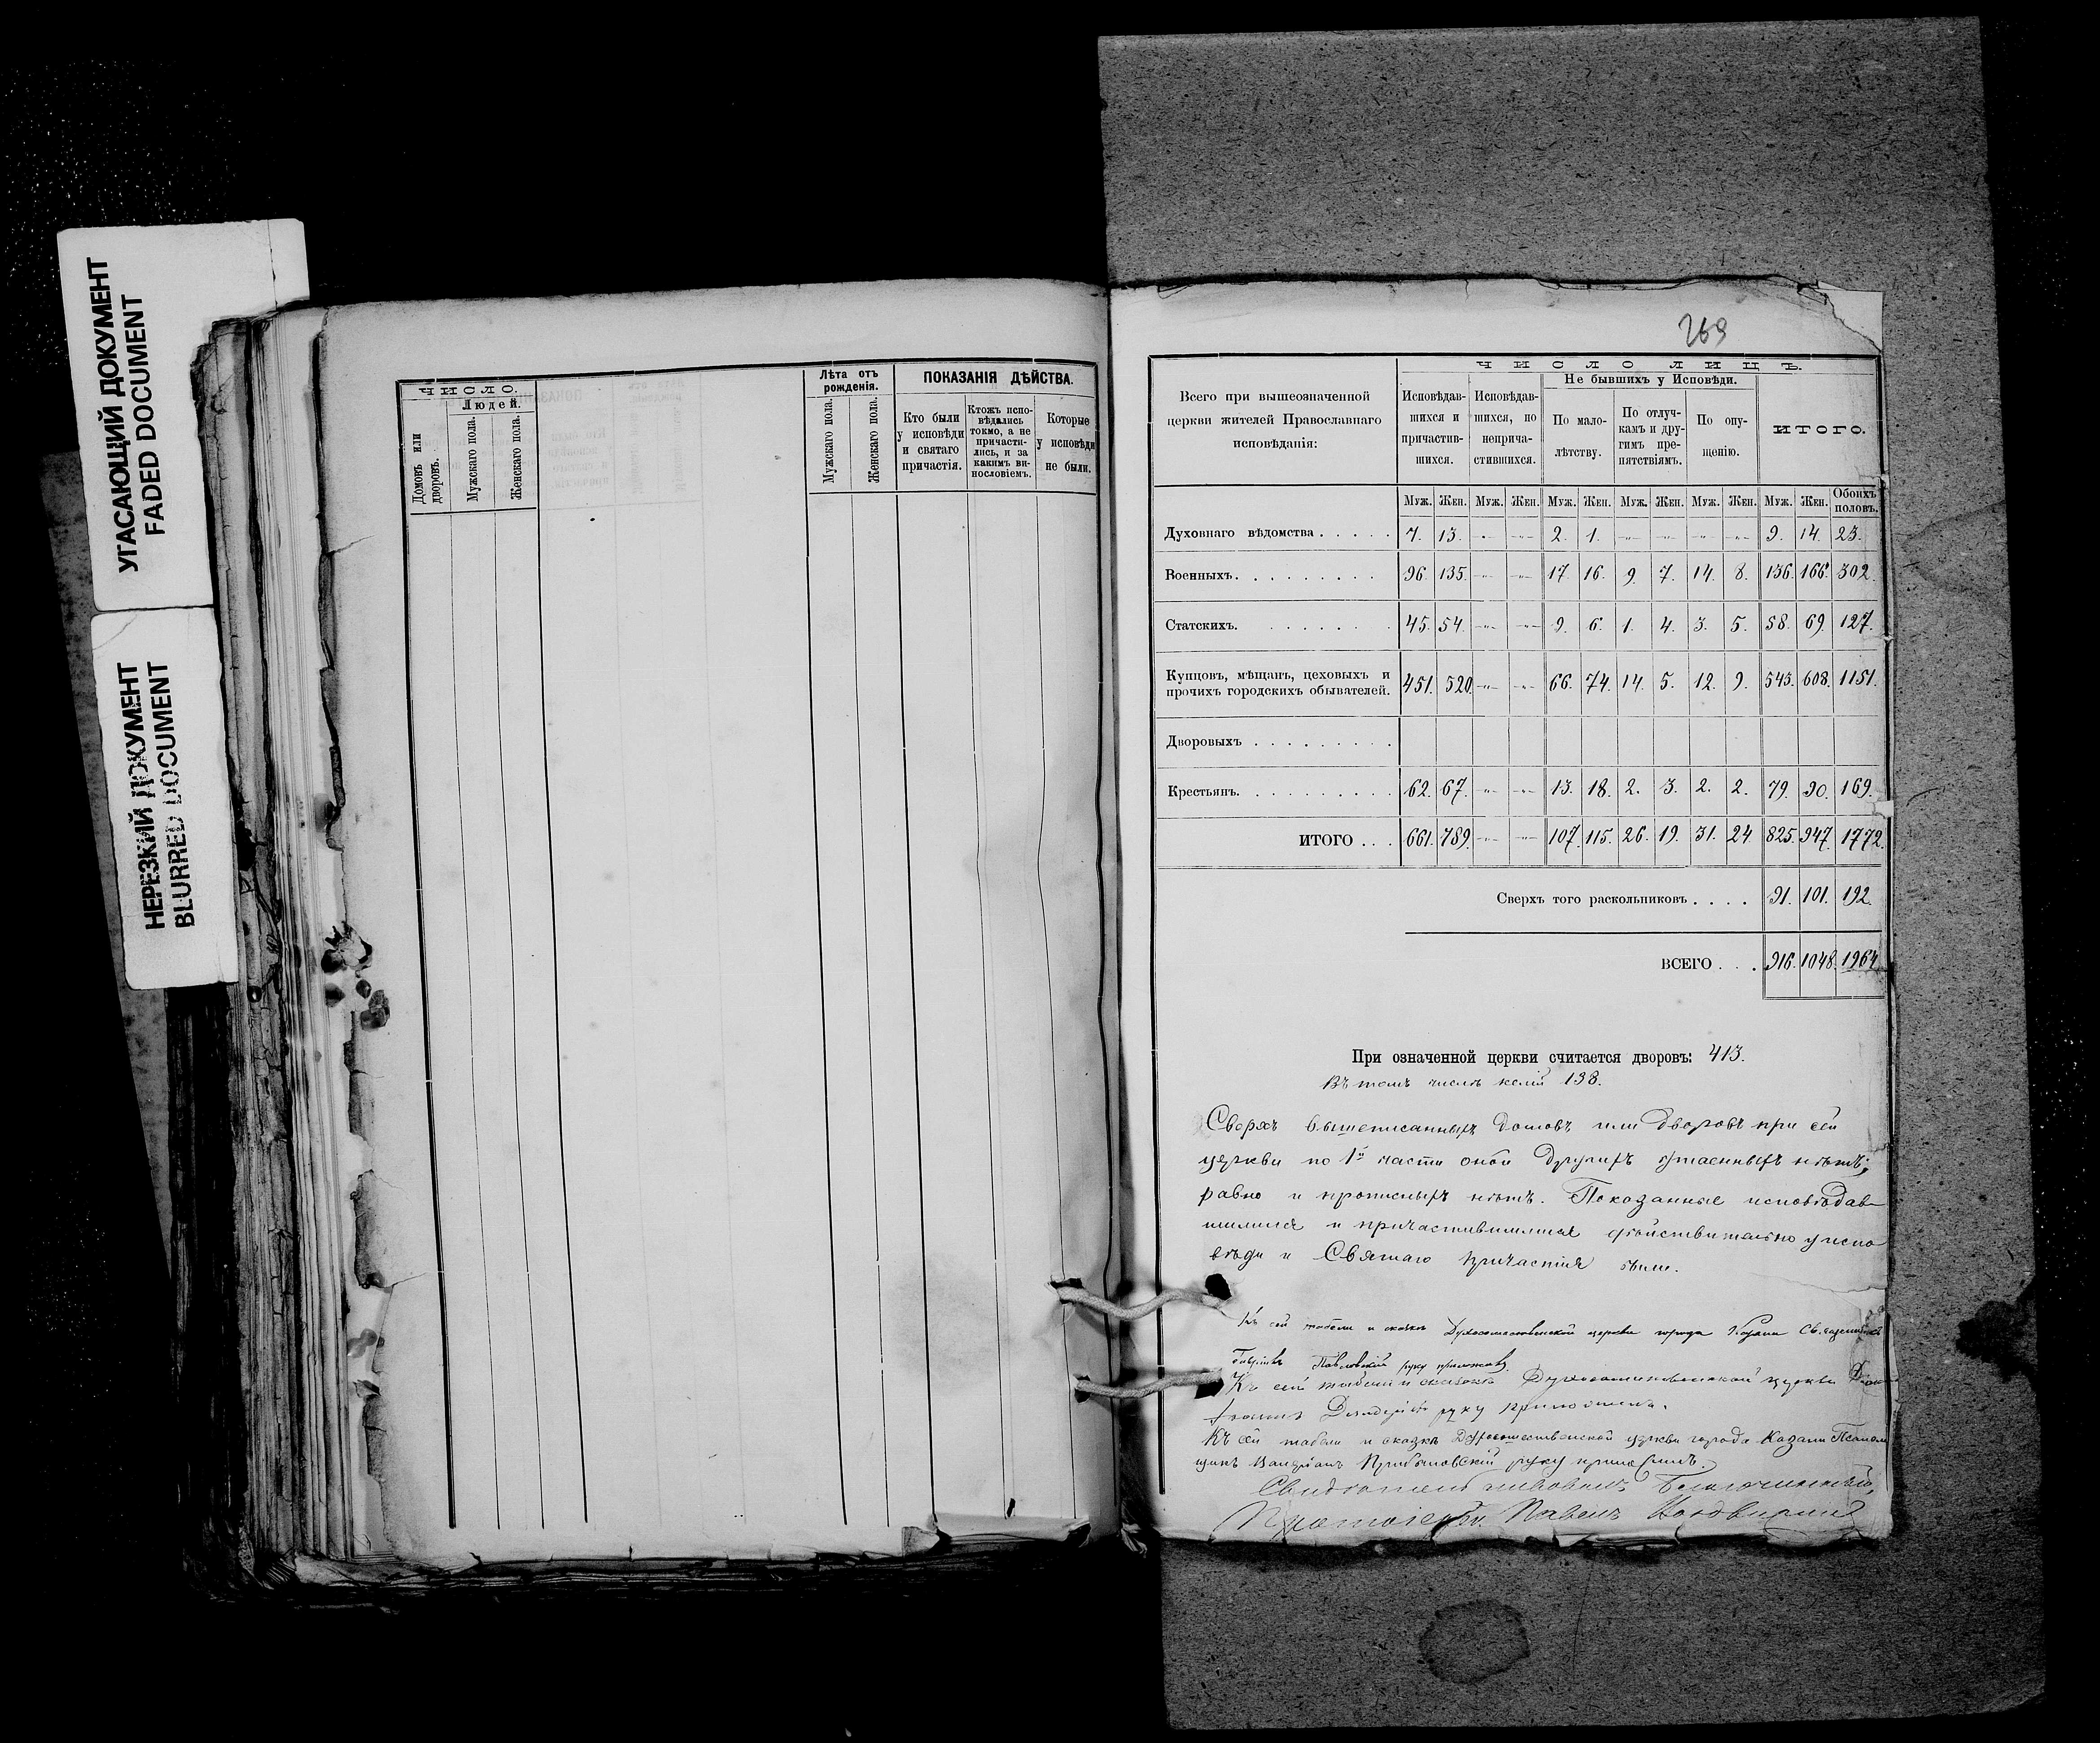 УГАСАЮЩИЙ ДОКУМЕНТ
FADED DOCUMENT
НЕРЕЗКИЙ ДОКУМЕНТ
BLURRED DOCUMENT
ЧИСЛО.
Людей.
Домовъ или дворовъ.
Мужскаго пола.
Женскаго пола.
Лѣта отъ рожденія.
Мужскаго пола.
Женскаго пола.
ПОКАЗАНІЯ ДѢЙСТВА.
Кто были у исповѣди и святаго причастія.
Ктожъ исповѣдались токмо, а не причастились, и за какимъ винословіемъ.
Которые у исповѣди не были.
269
Всего при вышеозначенной
церкви жителей Православнаго
исповѣданія:
ЧИСЛО ЛИЦЪ.
Исповѣдавшихся и причастившихся.
Исповѣдавшихся, но непричастившихся.
Не бывшихъ у Исповѣди.
По малолѣтству.
По отлучкамъ и другимъ препятствіямъ.
По опущенію.
ИТОГО.
Муж. Жен. Муж. Жен. Муж. Жен. Муж. Жен. Муж. Жен. Муж. Жен. Обоихъ половъ.
Духовнаго вѣдомства . . . . . 7. 13. -"- -"- 2. 1. -"- -"- -"- -"- 9. 14. 23.
Военныхъ. . . . . . . . . 96. 135. -"- -"- 17. 16. 9. 7. 14. 8. 136. 166. 302.
Статскихъ. . . . . . . . 45. 54. -"- -"- 9. 6. 1. 4. 3. 5. 58. 69. 127.
Купцовъ, мѣщанъ, цеховыхъ и
прочихъ городскихъ обывателей. 451. 520. -"- -"- 66. 74. 14. 5. 12. 9. 543. 608. 1151.
Дворовыхъ . . . . . . . . .
Крестьянъ. . . . . . . . . . 62. 67. -"- -"- 13. 18. 2. 3. 2. 2. 79. 90. 169.
ИТОГО . . . 661. 789. -"- -"- 107. 115. 26. 19. 31. 24. 825. 947. 1772.
Сверхъ того раскольниковъ . . . . 91. 101. 192.
ВСЕГО . . . 916. 1048. 1964.
При означенной церкви считается дворовъ: 413.
Въ томъ числѣ келій 138.
Сверхъ вышеписанныхъ домовъ или дворовъ при сей
церкви по 1й части оной другихъ утаенныхъ нѣтъ;
равно и прописныхъ нѣтъ. Показанные исповѣдав-
шимися и причастившимися дѣйствительно у испо-
вѣди и Святаго причастія были.
Къ сей табели и сказкѣ Духосошественской церкви города Казани Священникъ
Гавріилъ Павловскій руку приложилъ.
Къ сей табели и сказкѣ Духосошественской церкви
руку приложилъ.
Къ сей табели и сказкѣ Духосошественской церкви города Казани Псалом
щикъ руку приложилъ.
Свидѣтельствовалъ Благочинный,
Протоіерей Павелъ